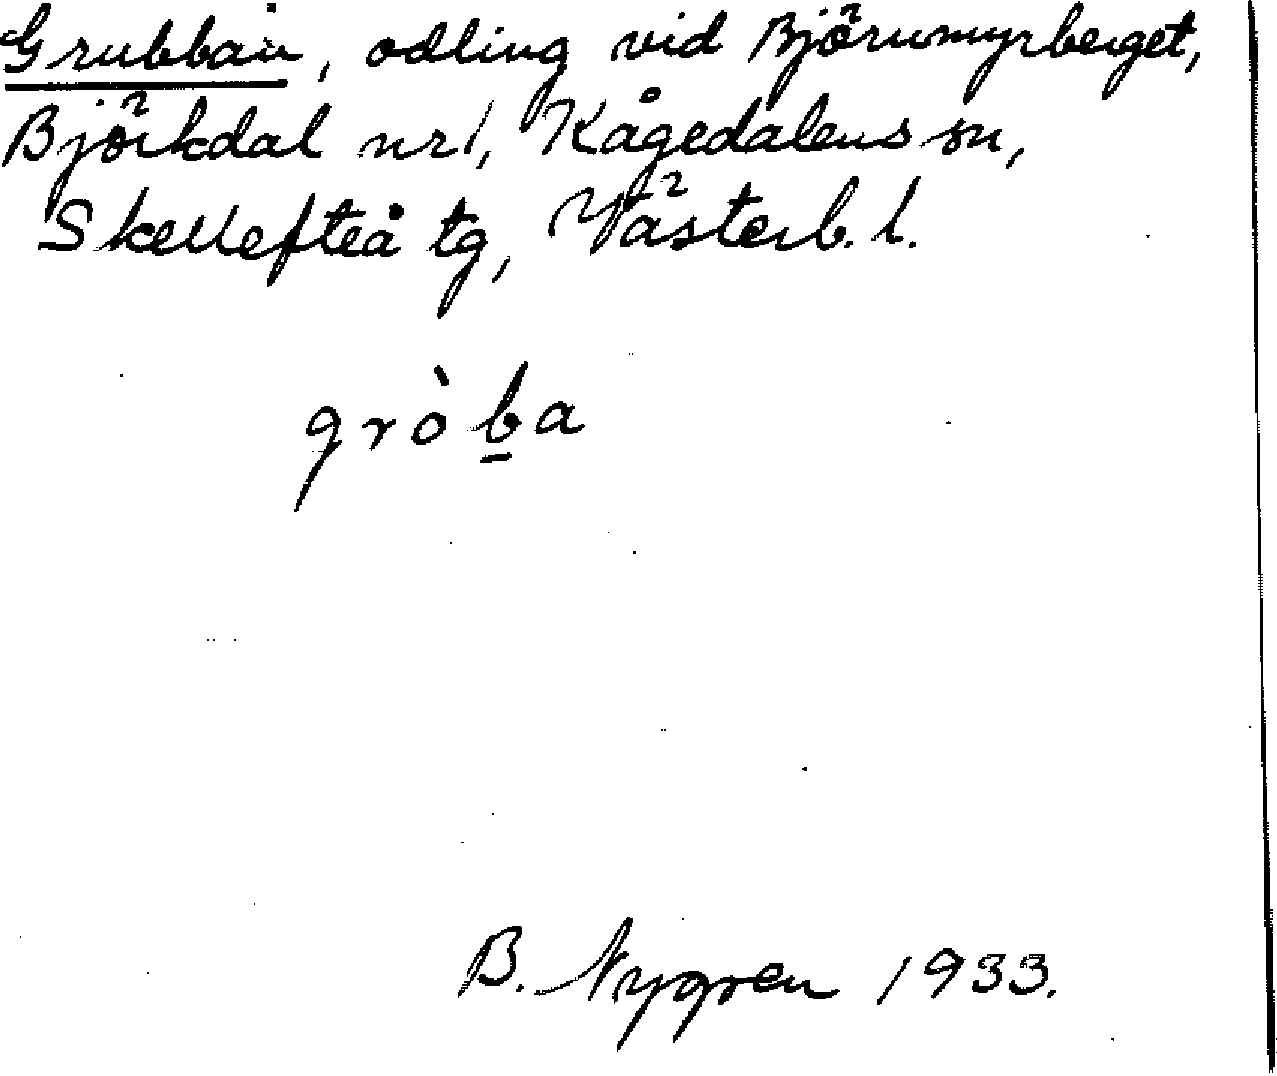 Grubban, odling vid Björnmyrberget,
Björkdal nr 1, Kågedalens sn,
Skellefteå tg, Västerb. l.
gròb̲a
B. Nygren 1933.